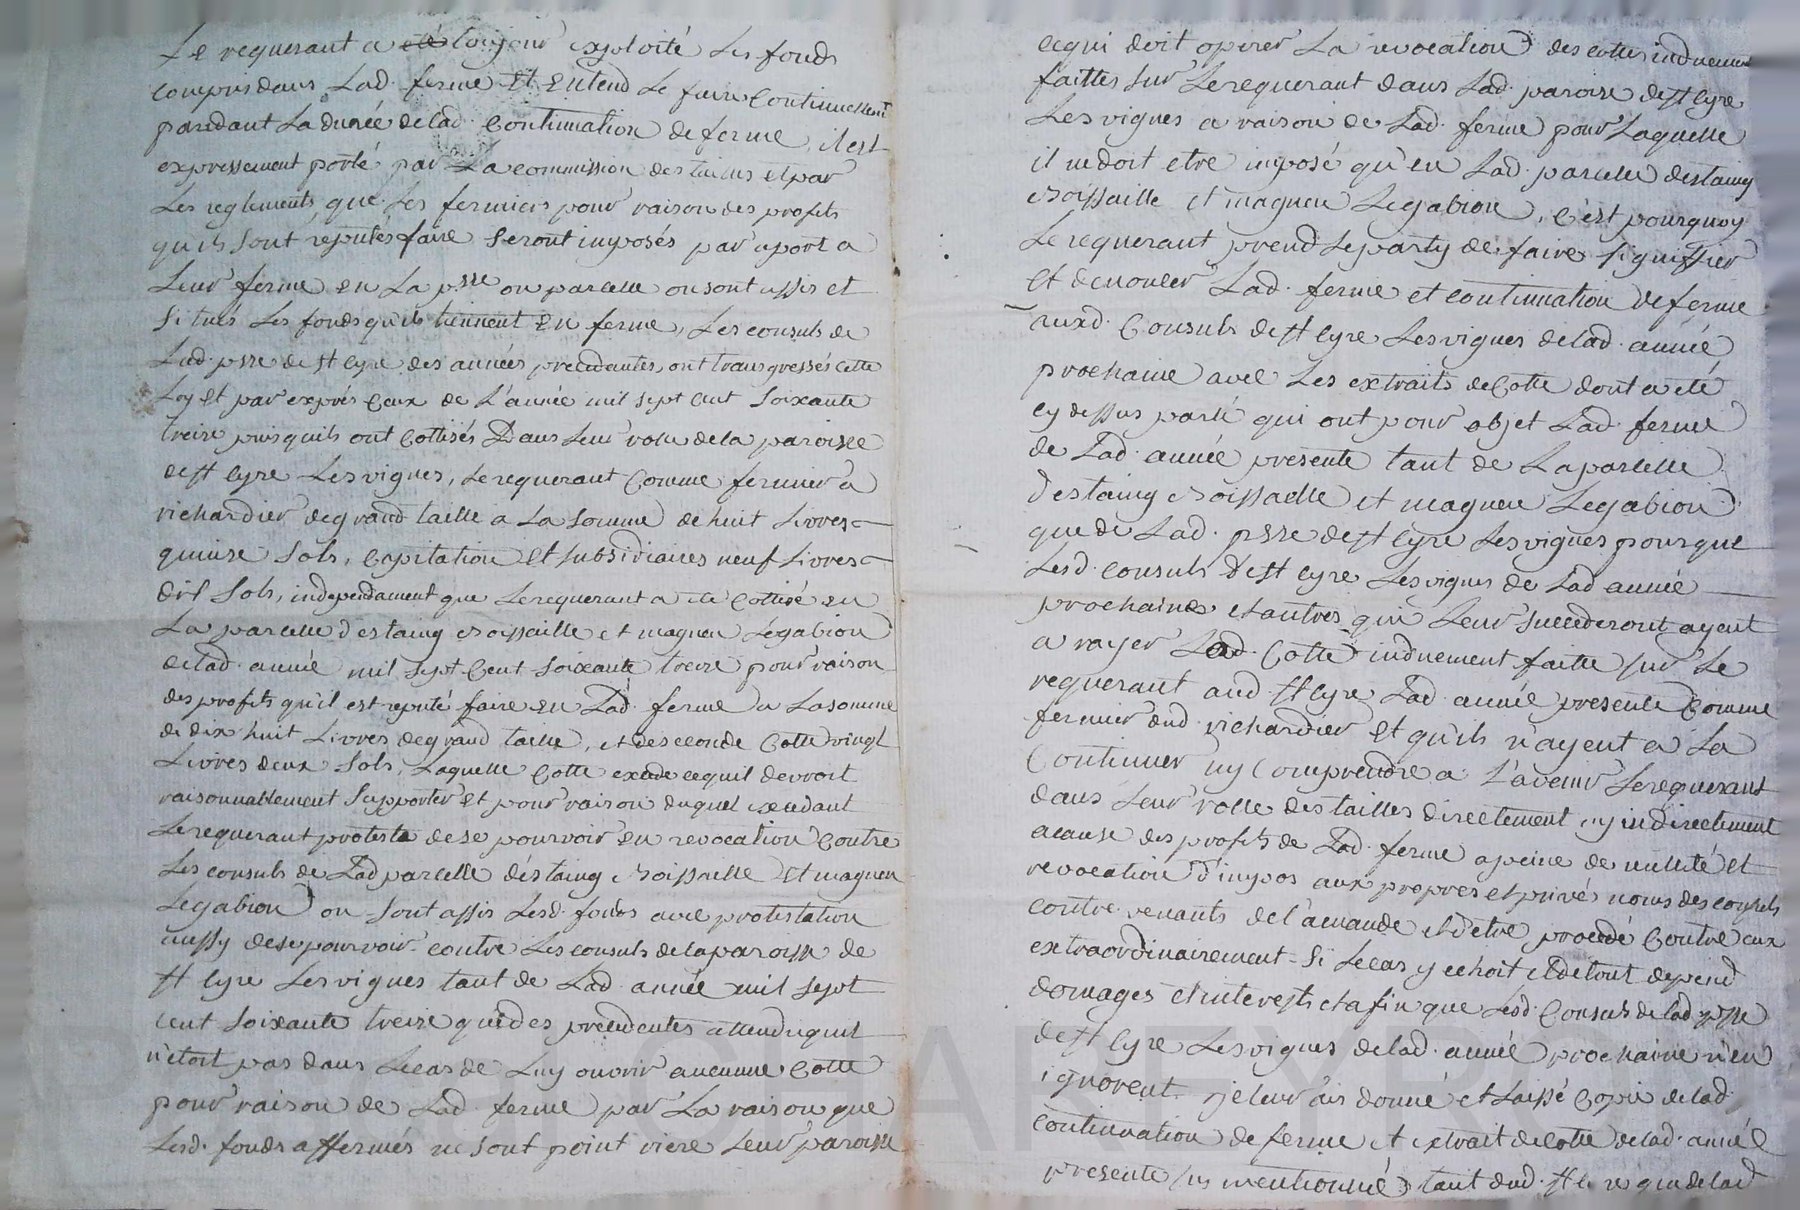 Le requerant a eté toujour exploité Les fonds
compris dans Lad. ferme Et Entend Le faire Continuellemt
pandant La durée de lad. Continuation de ferme, il est
expressement porté par La commission des tailles Et par
Les reglements, que Les fermiers pour raison des profits
qu'ils sont reputés faire Seront imposés par raport a
Leur ferme En La psse ou parcelle ou sont assis et
situés Les fonds qu'ils tiennent En ferme, Les consuls de
Lad. psse de St Cyre des années precedantes ont transgressés cette
Loy Et par exprés Ceux de L'année mil sept cent soixante
treize puisquils ont Cottisés Dans Leur rolle de la paroisse
de St Cyre Les vignes, Le requerant Comme fermier a
richardier de grand taille a La Somme de huit Livres
quinze Sols, Capitation Et subsidiaires neuf Livres
dix Sols, independament que Le requerant a été Cottisé en
La parcelle d'estaing soissaille et magneu Le gabion
de lad. année mil sept Cent soixante treize pour raison
des profits qu'il est reputé faire en Lad. ferme a La somme
de dix huit Livres de grand taille, et de seconde Cotte vingt
Livres deux Sols, Laquelle Cotte excede ce quil devroit
raisonnablement Supporter Et pour raison duquel excedant
Le requerant proteste de se pourvoir En revocation Contre
Les consuls de Lad parcelle d'éstaing soissaille Et magneu
Le gabion ou sont assis Lesd. fonds avec protestation
aussy de se pourvoir contre Les consuls de la paroisse de
St Cyre Les vignes tant de Lad. année mil sept
cent soixante treize que des precedentes attendu quil
n'étoit pas dans Le cas de Luy ouvrir aucunne Cotte
pour raison de Lad. ferme par La raison que
Lesd. fonds affermés ne sont point riere Leur paroisse
ce qui doit operer La revocation des cottes induement
faittes sur Le requerant dans Lad. paroisse de St Cyre
Les vignes a raison de Lad. ferme pour Laquelle
il ne doit etre imposé qu'en Lad. parcelle destaing
soissaille et magneu Le gabion, C'est pourquoy
Le requerant prend Le party de faire signiffier
Et denoncer Lad. ferme et continuation de ferme
auxd. Consuls de St Cyre Les vignes de lad. année
prochaine avec Les extraits de Cotte dont a été
cy dessus parlé qui ont pour objet Lad. ferme
de Lad. année presente tant de La parcelle
d'estaing soissaelle et magneu Le gabion
que de Lad. psse de St Cyre Les vignes pour que
Lesd. consuls de St Cyre Les vignes de Lad année
prochaine et autres qui Leur succederont ayent
a rayer Lad. Cotte induement faitte sur Le
requerant aud. St Cyre Lad. année presente Comme
fermier dud. richardier Et qu'ils n'ayent a La
Continuer ny Comprendre a L'avenir Le requerant
dans Leur rolle des tailles directement ny indirectement
acause des profits de Lad. ferme a peine de nullité et
revocation d'impos aux propres et privés noms des consuls
contrevenants de l'amande et d'etre procedé Contre eux
extraordinairement Si Le cas y echoit et de tout depend
domages et interests et afin que Lesd. Consuls de lad psse
de St Cyre Les vignes de lad. année prochaine n'en
ignorent je leur ais donné et Laissé Copie de lad.
continuation de ferme et extrait de Cotte de lad. année
presente sus mentionné tant dud. St